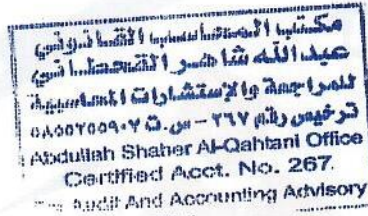 مكتب المحاسب القانوني
عبدالله شاهر القحطاني
للمراجعة والإستشارات المحاسبية
ترخيص رقم ٢٦٧ - س.ت
Abdullah Shaher Al-Qahtani Office
Certified Acct. No. 267.
Audit And Accounting Advisory